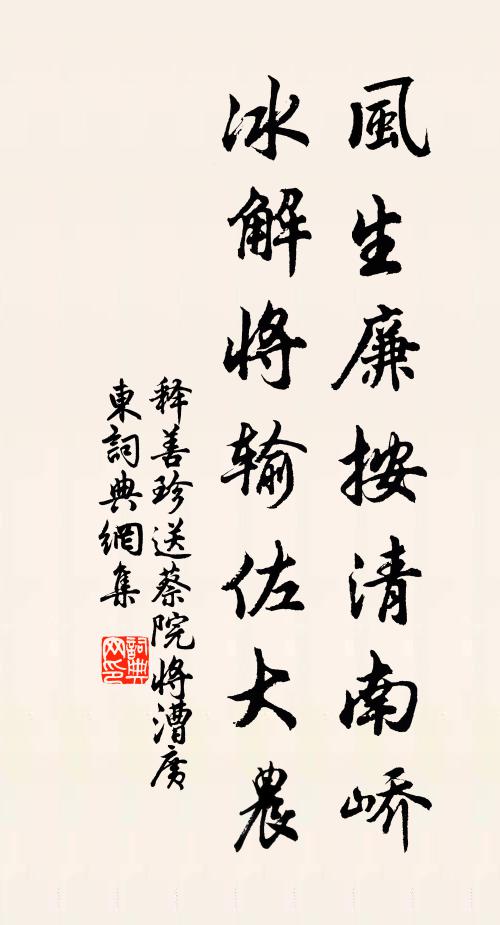 風生廉按清南嶠
冰解将输佐大農
释善珍送蔡院将漕廣
東詞典網集
詞典
网印